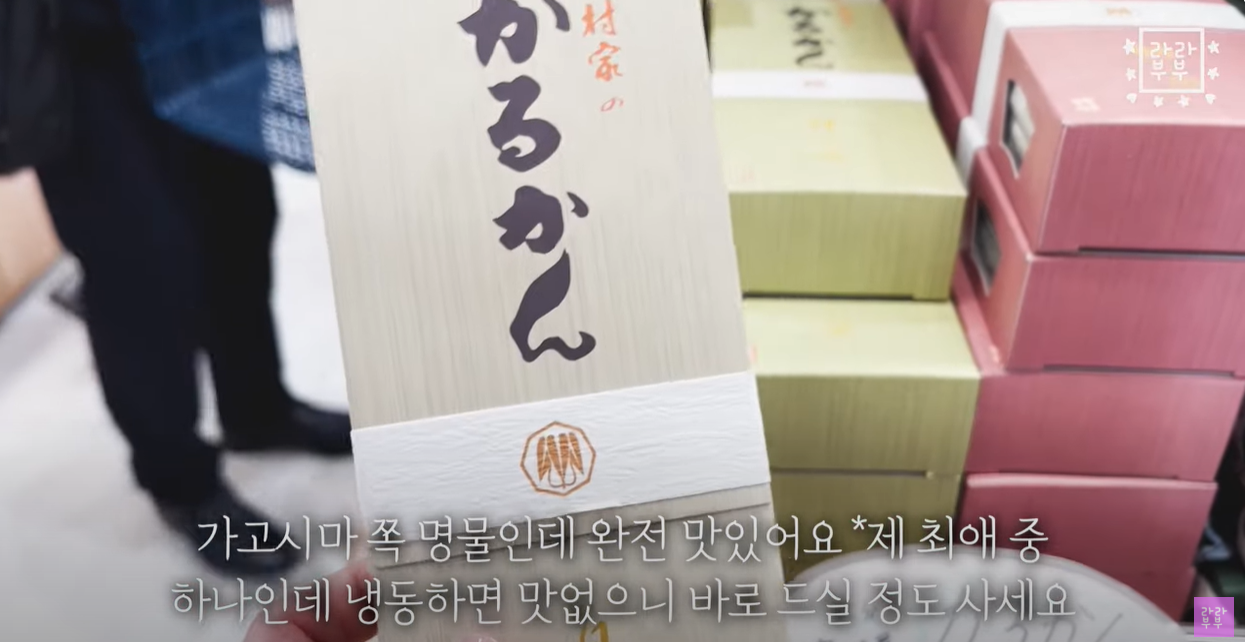 かるかん
村家の
라라
부부
가고시마 쪽 명물인데 완전 맛있어요 *제 최애 중
하나인데 냉동하면 맛없으니 바로 드실 정도 사세요
라라
부부